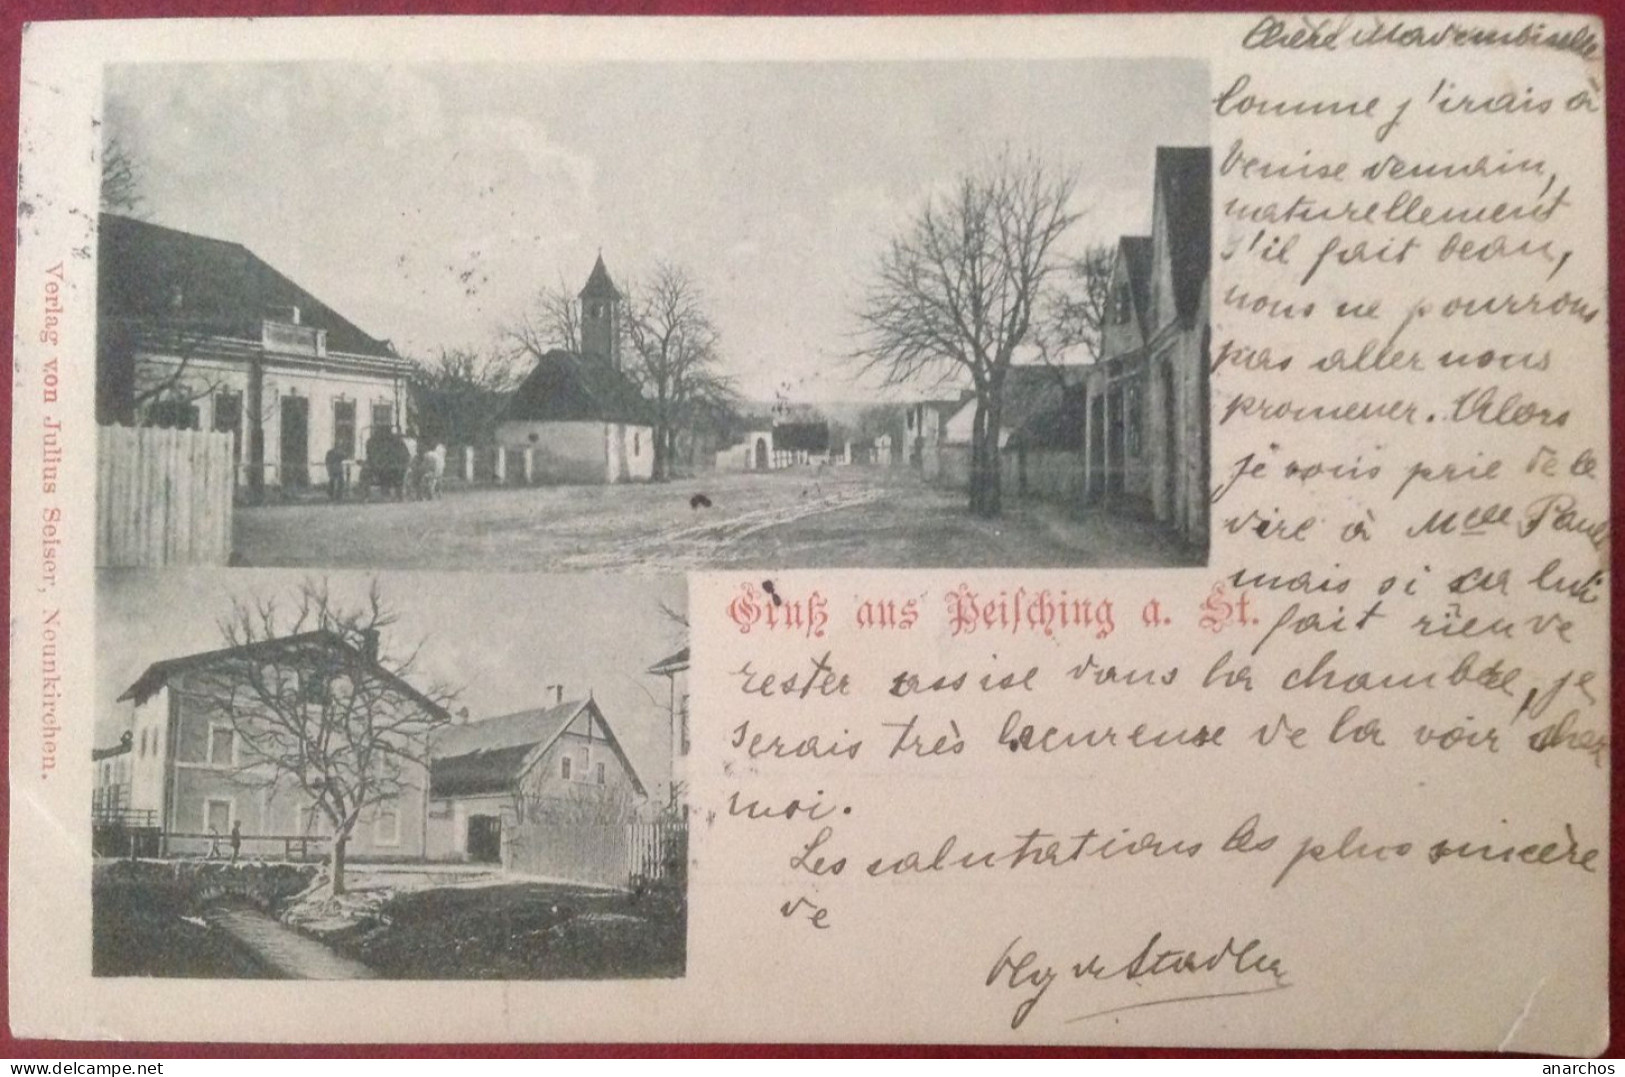 Chère Mademoiselle
Comme j'irais à
Venise demain,
naturellement
s'il fait beau,
nous ne pourrons
pas aller nous
promener. Alors
je vous prie de le
dire à Mcelle Paule
mais si ça lui
fait rien de
rester assise dans la chambre, je
serais très heureuse de la voir chez
moi.
Les salutations les plus sincère
de
Olg de Stadler
Gruß aus Peisching a. St.
Verlag von Julius Seiser, Neunkirchen.
anarchos